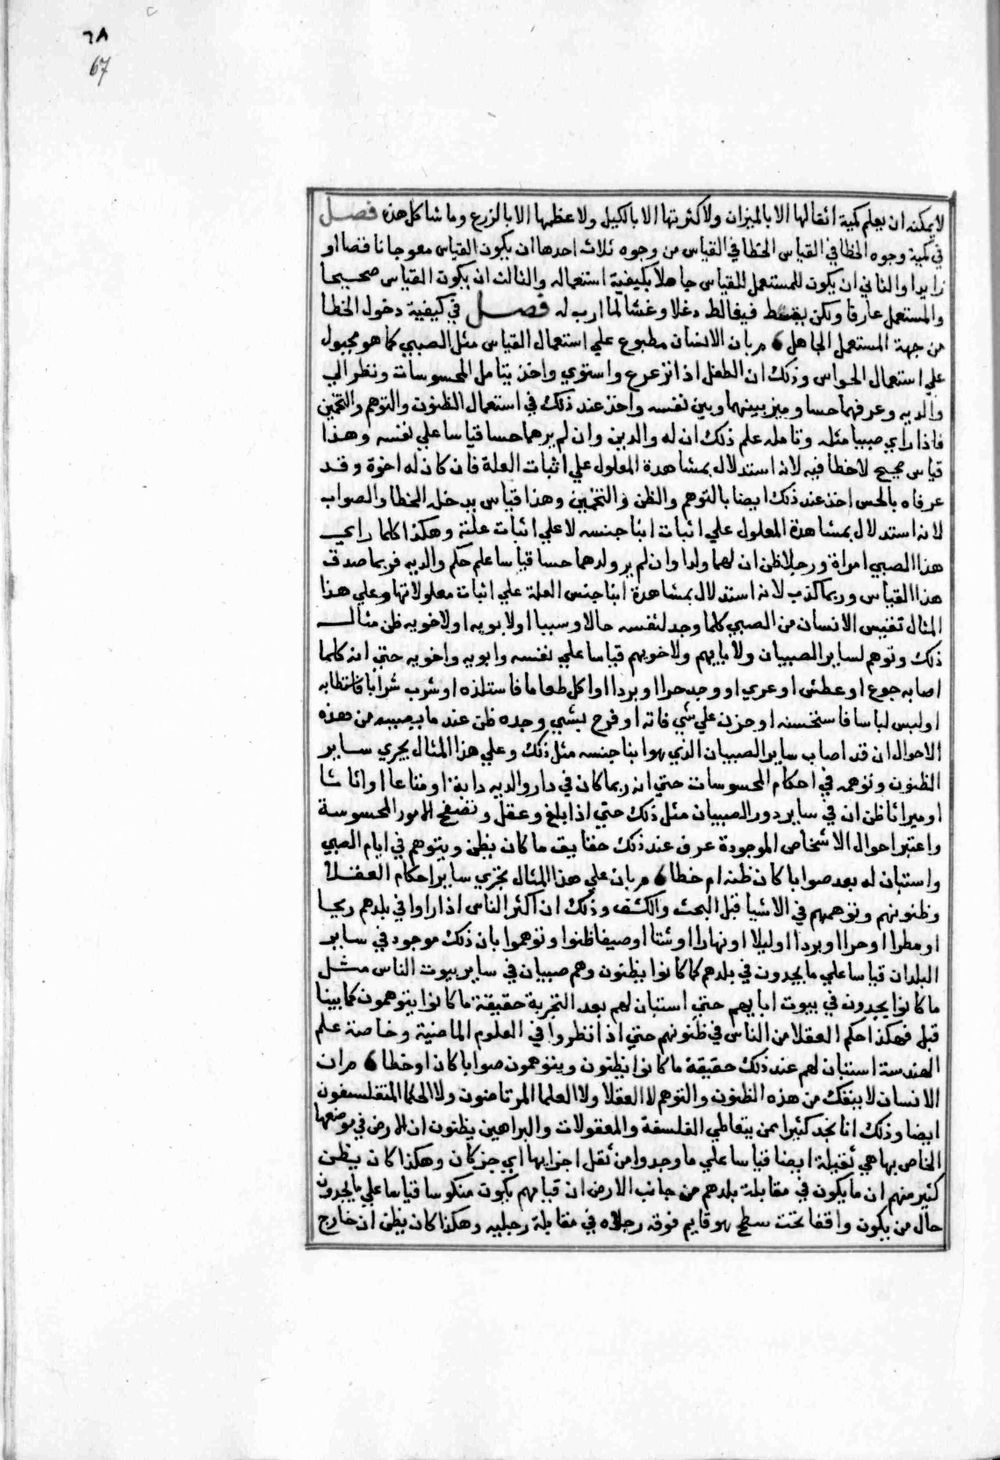 ٦٨
67
لا يمكنه ان يعلم كمية اثقالها الا بالميزان ولا كثرتها الا بالكيل ولا عظمها الا بالزرع وما شاكل هذه فصل
في كمية وجوه الخطا في القياس الخطا في القياس من وجوه ثلاث احدها ان يكون القياس معوجا ناقصا او
زايدا والثاني ان يكون للمستعمل للقياس جاهلا بكيفية استعماله والثالث ان يكون القياس صحيحا
والمستعمل عارفا ولكن يقسط فيغالط دغلا وغشا لما ارب له فصل في كيفية دخول الخطا
من جهة المستعمل الجاهل مر بان الانسان مطبوع علي استعمال القياس مثل الصبي كما هو مجبول
علي استعمال الحواس وذلك ان الطفل اذا ترعرع واستوي واخذ يتامل المحسوسات ونظر الي
والديه وعرفهما حسا وميز بينهما وبين نفسه واخذ عند ذلك في استعمال الظنون والتوهم والتخمين
فاذا راي صبيا مثله وتامله علم ذلك ان له والدين وان لم يرهما حسا قياسا علي نفسه وهذا
قياس صحيح لا خطا فيه لانه استدلال بمشاهدة المعلول علي اثبات العلة فان كان له اخوة وقد
عرفاه بالحس اخذ عند ذلك ايضا بالتوهم والظن والتخمين وهذا قياس يدخل الخطا والصواب
لانه استدلال بمشاهدة المعلول علي اثبات ابنا جنسه لا علي اثبات علته وهكذا كلما راي
هذا الصبي امراة ورجلا ظن ان لهما ولدا وان لم ير ولدهما حسا قياسا علم حكم والديه فربما صدق
هذا القياس وربما كذب لانه استدلال بمشاهدة ابنا جنس العلة علي اثبات معلولاتها وعلي هذا
المثال تقيس الانسان من الصبي كلما وجد لنفسه حالا وسببا اولابويه اولاخويه ظن مثال
ذلك وتوهم لساير الصبيان ولابايهم ولاخويهم قياسا علي نفسه وابويه واخويه حتي انه كلما
اصابه جوع او عطش او عري او وجد حرا او بردا او اكل طعاما فاستلذه او شرب شرابا فاستطابه
او لبس لباسا فاستحسنه او حزن علي شي فاته او فرح بشي وجده ظن عند ما يصيبه من هذه
الاحوال ان قد اصاب ساير الصبيان الذي هو ابنا جنسه مثل ذلك وعلي هذا المثال يجري ساير
الظنون وتوهمه في احكام المحسوسات حتي انه ربما كان في دار والديه دابة او متاعا او اثاثا
او ميراثا ظن ان في ساير دور الصبيان مثل ذلك حتي اذا بلغ وعقل وتصفح الامور المحسوسة
واعتبر احوال الاشخاص الموجودة عرف عند ذلك حقايق ما كان يظن ويتوهم في ايام الصبي
واستبان له بعد صوابا كان ظنه ام خطا مر بان علي هذا المثال يجري ساير احكام العقلا
وظنونهم وتوهمهم في الاشيا قبل البحث والكشف وذلك ان اكثر الناس اذا راوا في بلدهم ريحا
او مطرا او حرا او بردا او ليلا او نهارا او شتا او صيفا ظنوا وتوهموا بان ذلك موجود في ساير
البلدان قياسا علي ما يجدون في بلدهم كما كانوا يظنون وهم صبيان في ساير بيوت الناس مثل
ما كانوا يجدون في بيوت ابايهم حتي استبان لهم بعد التجربة حقيقة ما كانوا يتوهمون كما بينا
قبل فهكذا حكم العقلا من الناس في ظنونهم حتي اذا نظروا في العلوم الماضية وخاصة علم
الهندسة استبان لهم عند ذلك حقيقة ما كانوا يظنون ويتوهمون صوابا كان او خطا مر ان
الانسان لا ينفك من هذه الظنون والتوهم لا العقلا ولا العلما المرتاضون ولا الحكما المتفلسفون
ايضا وذلك انا نجد كثيرا ممن يتعاطي الفلسفة والمعقولات والبراهين يظنون ان الارض في موضعها
الخاص بها هي ثقيلة ايضا قياسا علي ما وجدوا من ثقل اجزايها اي جز كان وهكذا كان يظن
كثير منهم ان ما يكون في مقابلة بلدهم من جانب الارض ان قيامهم يكون منكوسا قياسا علي ما يجدون
حال من يكون واقفا تحت سطح هو قايم فوقه رجلاه في مقابلة رجليه وهكذا كان يظن ان خارج